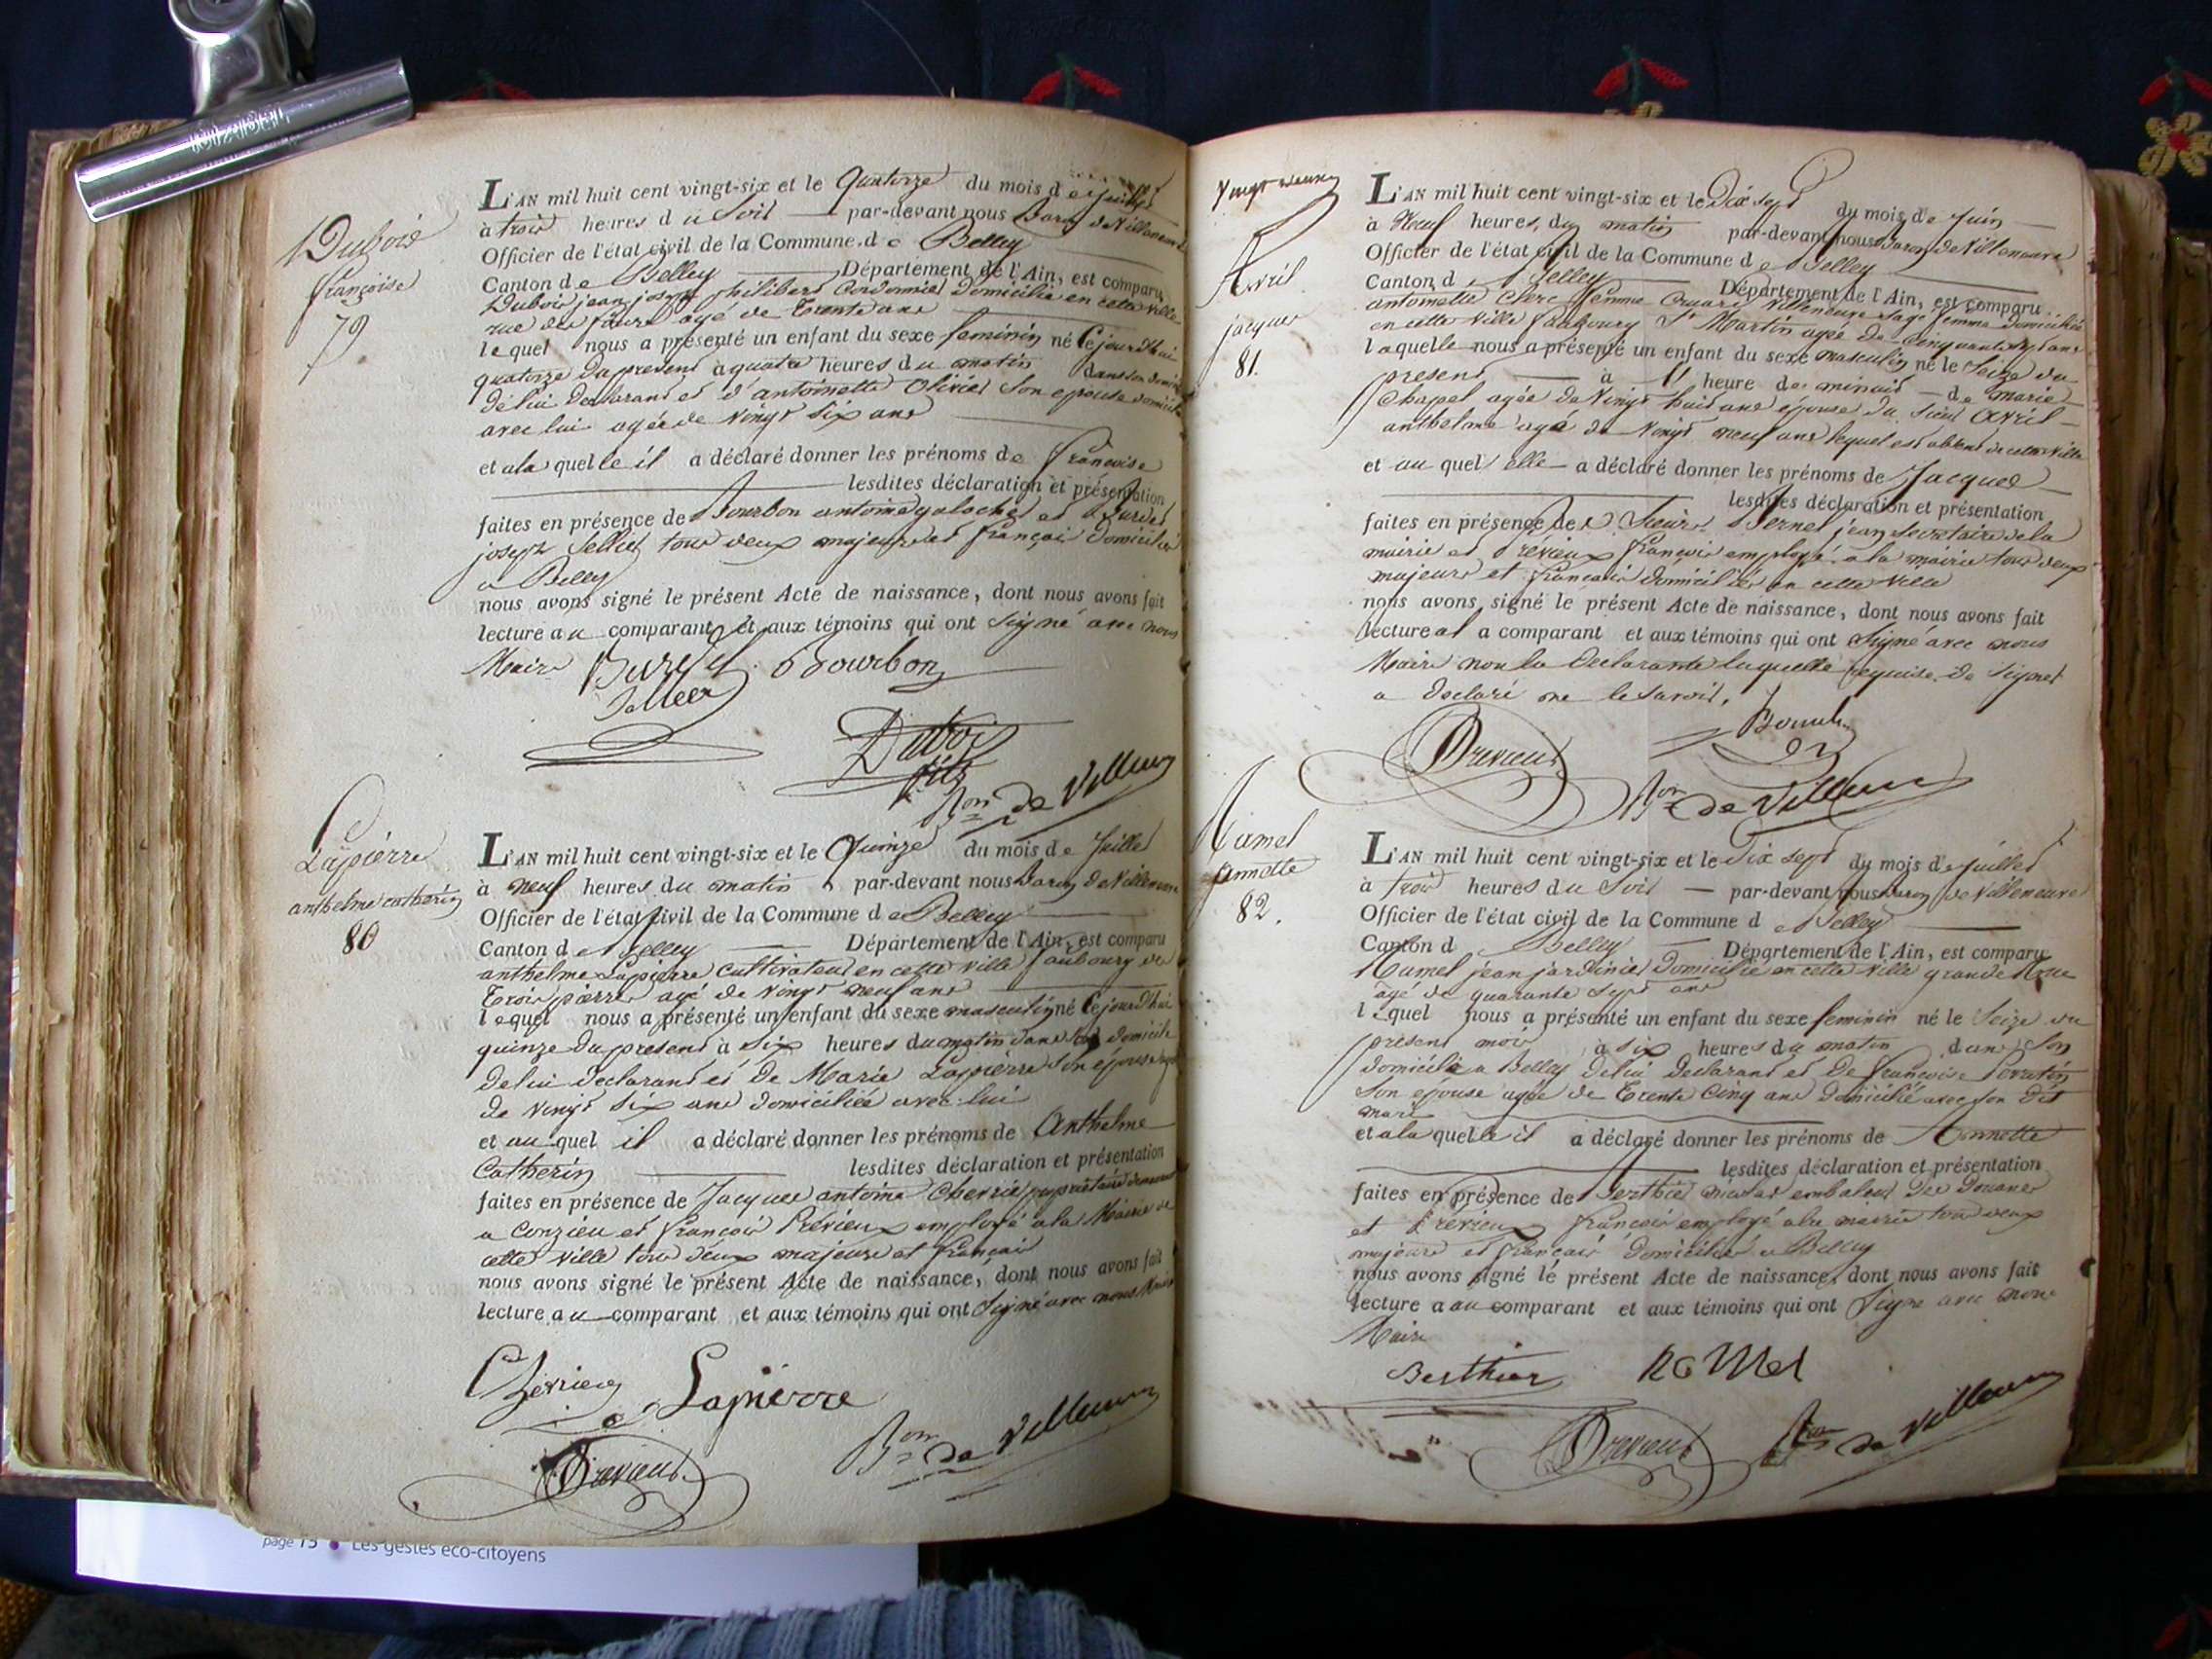 Dubois
françoise
79
L'AN mil huit cent vingt-six et le Quatorze du mois de juillet
à trois heures du Soir par-devant nous Baron de Villeneuve
Officier de l'état civil de la Commune de Belley
Canton de Belley Département de l'Ain, est comparu
Dubois jean joseph philibert Cordonnier domicilié en cette ville
rue des agé de Trente ans
lequel nous a présenté un enfant du sexe feminin né Cejourdhui
quatorze du present à quatre heures du matin dans son domicile
de lui declarant et d'antoinette Olivier Son epouse domiciliée
avec lui agée de Vingt Six ans
et a laquelle il a déclaré donner les prénoms de françoise
lesdites déclaration et présentation
faites en présence de Bourbon antoine galochier et Burdet
joseph Sellier tous deux majeurs et français domiciliés
a Belley
nous avons signé le présent Acte de naissance, dont nous avons fait
lecture au comparant et aux témoins qui ont Signé avec nous
Maire Burdet Bourbon
Sellier
Dubois
fils
Bon de Villeneuve
Lapierre
anthelme catherin
80
L'AN mil huit cent vingt-six et le Quinze du mois de Juillet
à neuf heures du matin par-devant nous Baron de Villeneuve
Officier de l'état civil de la Commune de Belley
Canton de Belley Département de l'Ain, est comparu
anthelme Lapierre Cultivateur en cette ville faubourg de
Trois pierres agé de Vingt neuf ans
lequel nous a présenté un enfant du sexe masculin né Cejourdhui
quinze du present à Six heures du matin dans son domicile
de lui declarant et de Marie Lapierre Son épouse agée
de Vingt Six ans domiciliée avec lui
et au quel il a déclaré donner les prénoms de Anthelme
Catherin lesdites déclaration et présentation
faites en présence de Jacques antoine Cherrier propriétaire demeurant
a Conzieu et françois Prévieux employé a la Mairie de
cette Ville tous deux majeurs et français
nous avons signé le présent Acte de naissance, dont nous avons fait
lecture au comparant et aux témoins qui ont Signé avec nous Maire
Lapierre
Previeux
Bon de Villeneuve
Vingt neuf
Avril
jacques
81.
L'AN mil huit cent vingt-six et le Dix sept du mois de Juin
à Neuf heures, du matin par-devant nous Baron de Villeneuve
Officier de l'état civil de la Commune de Belley
Canton de Belley Département de l'Ain, est comparu
antoinette Clerc femme Villeneuve Sage femme domiciliée
en cette Ville faubourg St Martin agée de Cinquante Sept ans
laquelle nous a présenté un enfant du sexe masculin né le Seize du
present à 11 heure de minuit de marie
Chapel agée de Vingt huit ans épouse du Sieur Avril
anthelme agé de Vingt neuf ans lequel est absent de cette Ville
et au quel elle a déclaré donner les prénoms de Jacques
lesdites déclaration et présentation
faites en présence des Sieurs Bernet jean Secretaire de la
mairie et Prévieux françois employé a la mairie tous deux
majeurs et français domiciliés en cette Ville
nous avons signé le présent Acte de naissance, dont nous avons fait
lecture a la comparant et aux témoins qui ont Signé avec nous
Maire non la declarante laquelle requise de signer
a declaré ne le Savoir.
Previeux
Bon de Villeneuve
Ramel
Annette
82.
L'AN mil huit cent vingt-six et le Dix sept du mois de juillet
à trois heures du Soir par-devant nous Baron de Villeneuve
Officier de l'état civil de la Commune de Belley
Canton de Belley Département de l'Ain, est comparu
Ramel jean jardinier domicilié en cette Ville grande Rue
agé de quarante Sept ans
lequel nous a présenté un enfant du sexe feminin né le Seize du
présent mois à Six heures du matin dans Son
domicile a Belley de lui declarant et de françoise
Son épouse agée de Trente Cinq ans domiciliée avec son dit
mari
et a la quelle il a déclaré donner les prénoms de Annette
lesdites déclaration et présentation
faites en présence de Berthier embaleur des Douanes
et Prévieux françois employé a la mairie tous deux
majeurs et français domiciliés a Belley
nous avons signé le présent Acte de naissance, dont nous avons fait
lecture a au comparant et aux témoins qui ont Signé avec nous
Maire
Berthier RaMel
Previeux Bon de Villeneuve
page 15 • Les gestes éco-citoyens